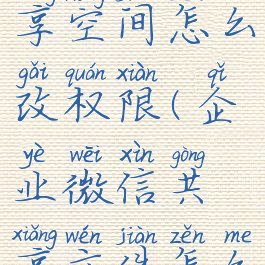 享空间怎么
gǎi quán xiàn qǐ
改权限(企
yè wēi xìn gòng
业微信共
xiǎng wén jiàn zěn me
享文件怎么